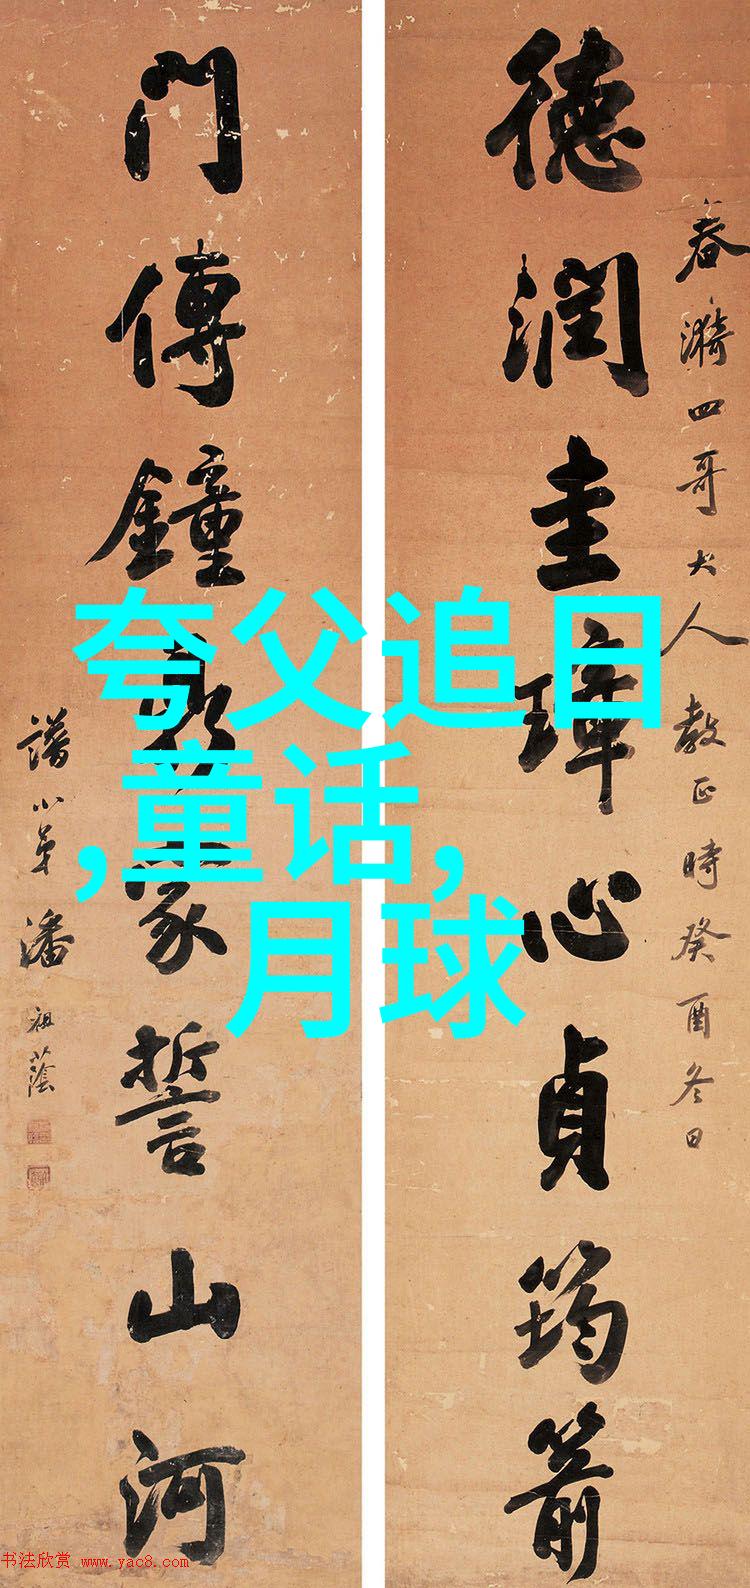 德潤圭璋心貞筠箭
春漪四哥大人教正時癸酉冬日
門傳鐘家誓山河
譜小弟潘祖蔭
夸父追日
,童话,
月球
书法欣赏 www.yac8.com